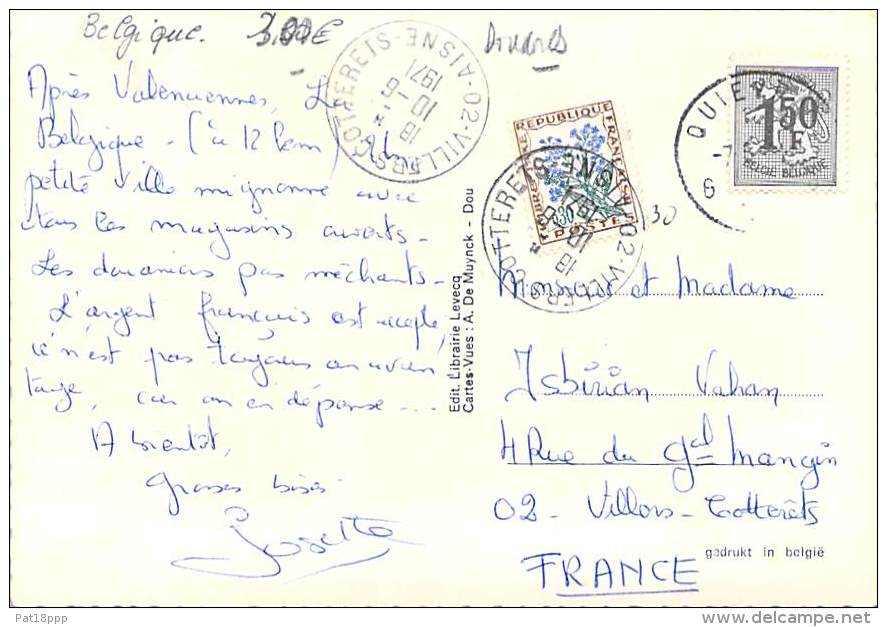 Belgique. 3,00€
Dourdres
Après Valenciennes, La
Belgique - (à 12 km) Une
petite ville mignonne avec
tous les magasins ouverts -
Les douaniers pas méchants -
L'argent français est accepté,
ce n'est pas toujours un avan
tage, car on en dépense ...
A bientôt,
grosses bises
Josette
02-VILLERS-COTTERETS-AISNE
18 H
10-6
1971
REPUBLIQUE FRANCAISE
0,30
POSTES
02-VILLERS-COTTERETS-AISNE
18 H
10-6
1971
30
QUIE
-7
6
1F50
BELGIE-BELGIQUE
Edit. Librairie Levecq
Cartes-Vues : A. De Muynck - Dou
Monsieur et Madame
Isbirian Vahan
4 Rue du Gal Mangin
02 - Villers-Cotterêts
FRANCE
gedrukt in belgië
Pat18ppp
delcampe.net